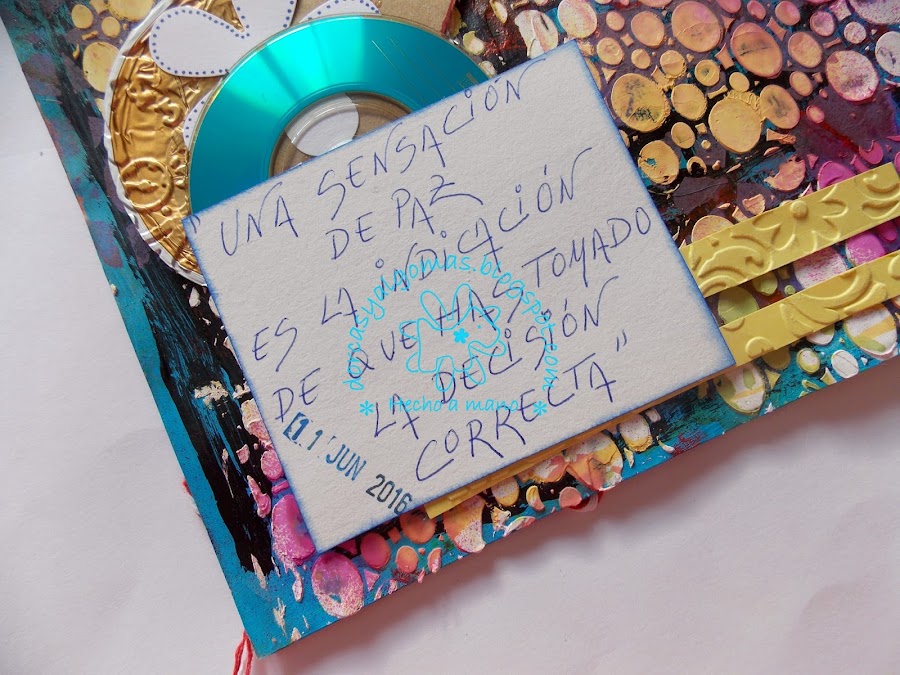 "UNA SENSACIÓN
DE PAZ
ES LA iNDiCACiÓN
DE QUE HAS TOMADO
LA DECiSiÓN
CORRECTA"
11 JUN 2016
dorcasydiplomas.blogspot.com
* Hecho a mano *